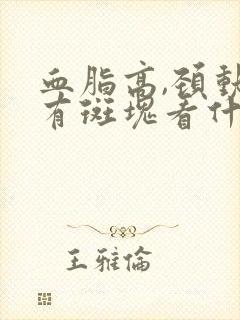 血脂高,颈動
有斑塊看什
王雅倫